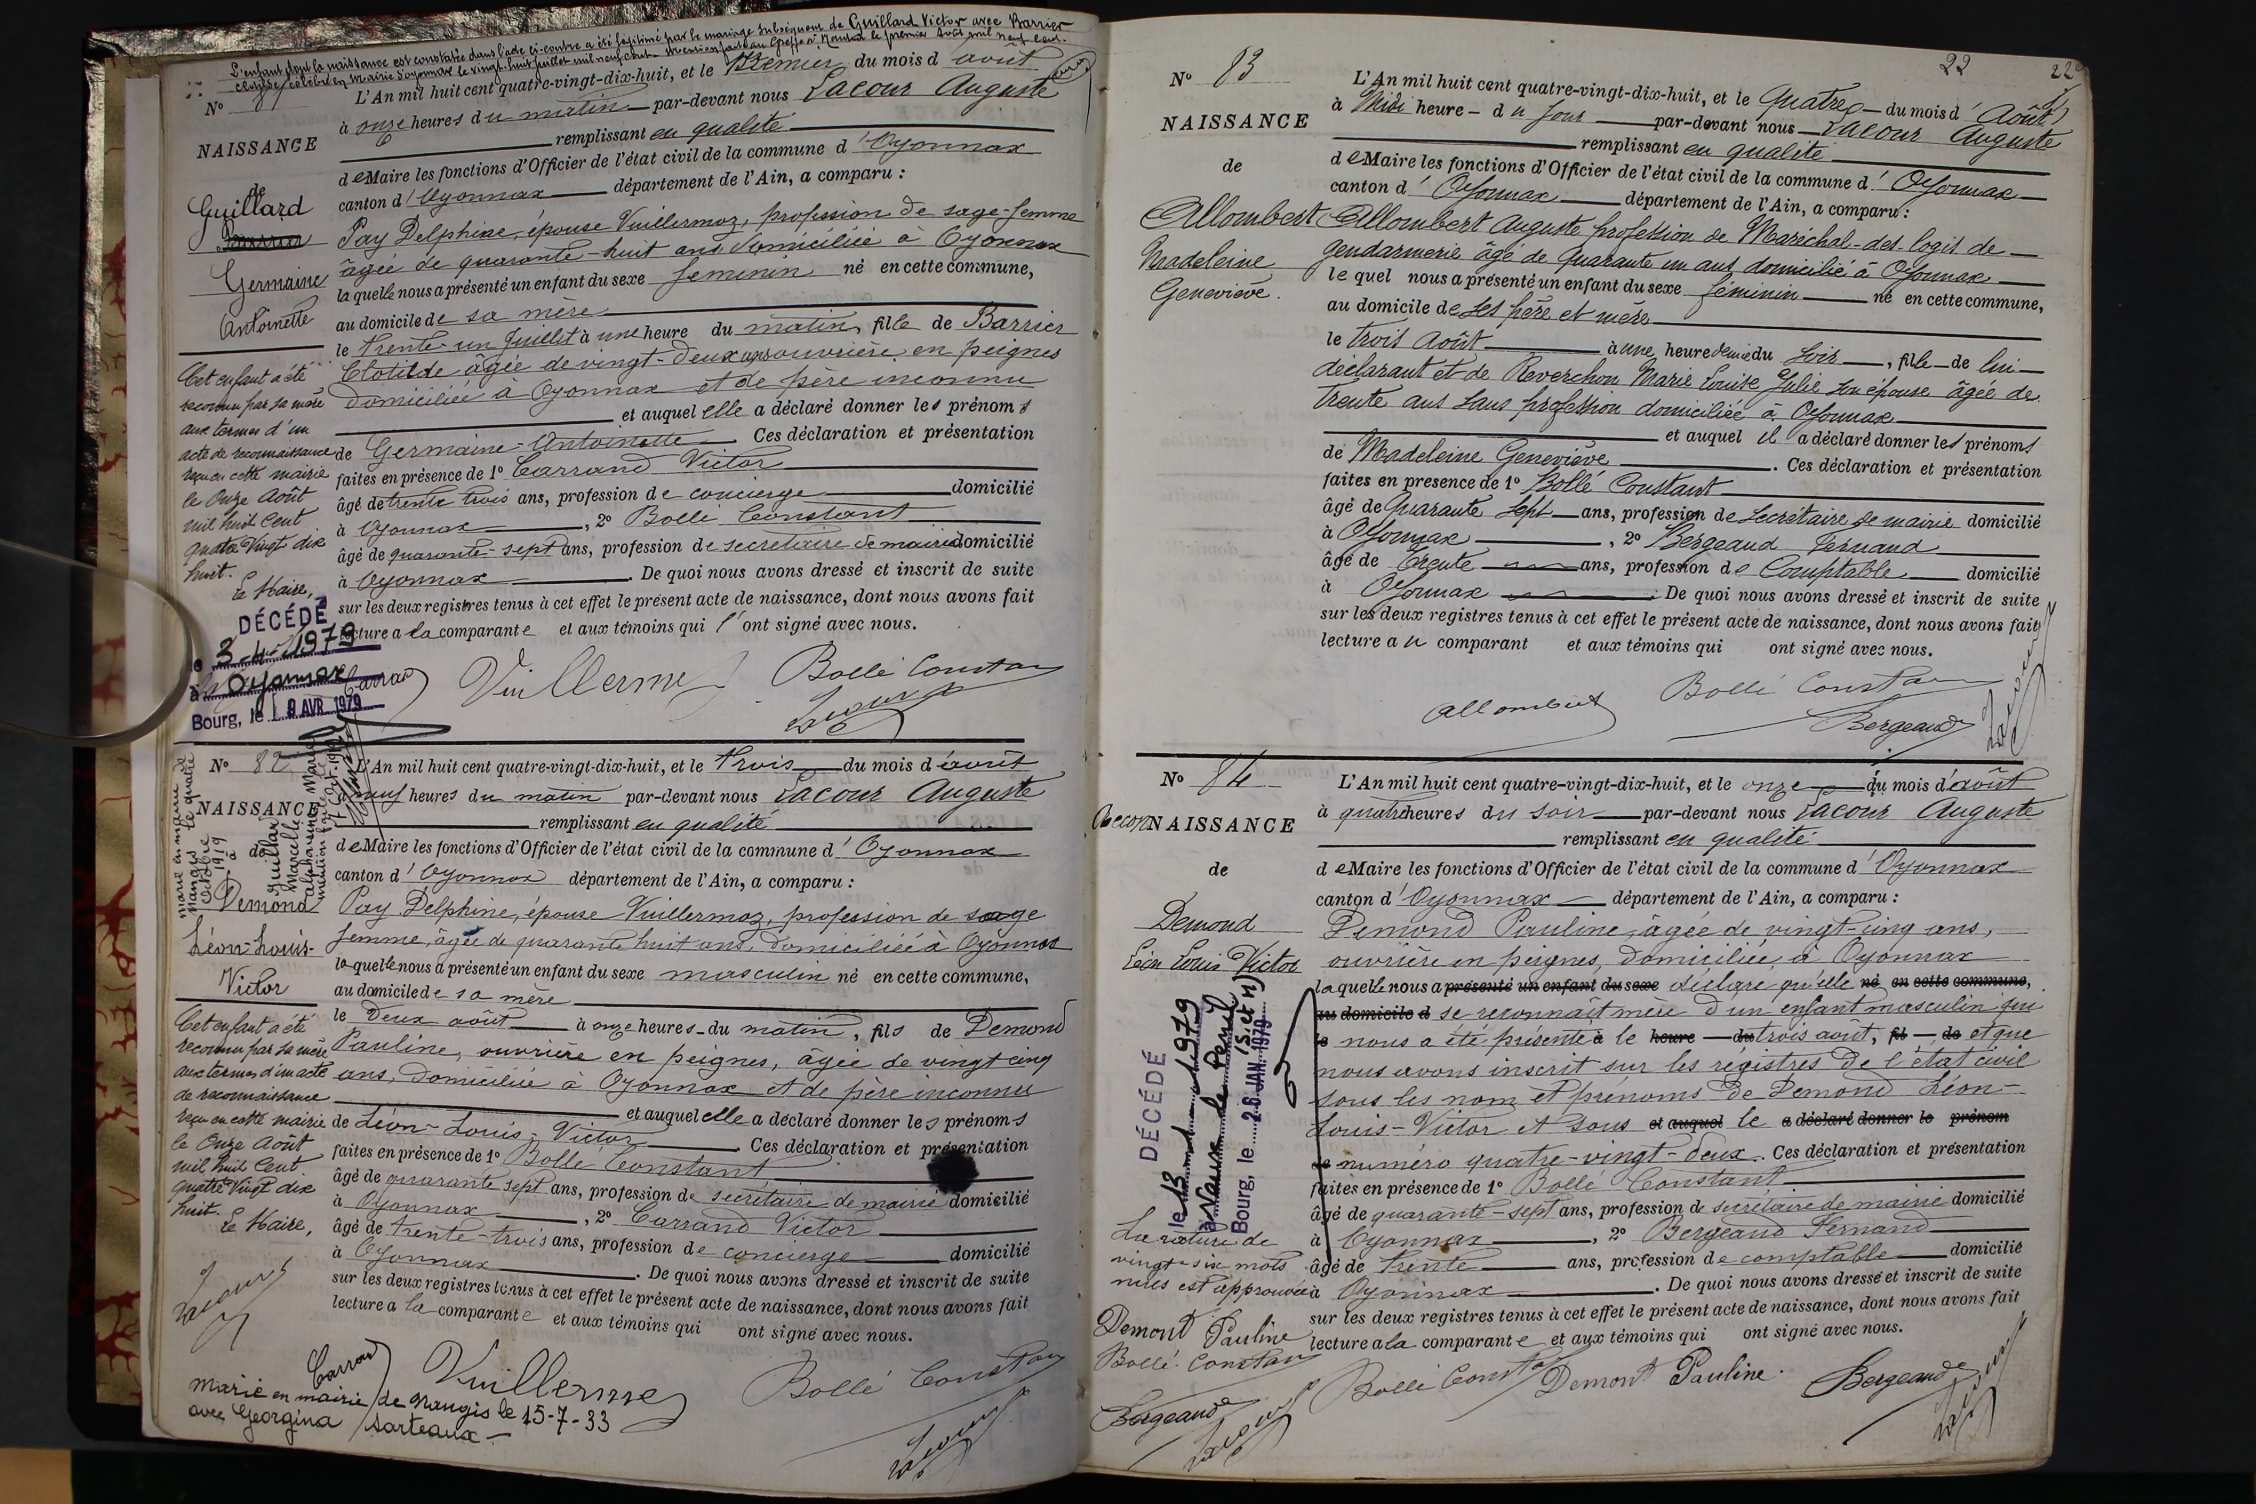 L'enfant dont la naissance est constatée dans l'acte ci-contre a été légitimé par le mariage subséquent de Guillard Victor avec Barrier
Clotilde célébré en mairie d'Oyonnax le vingt-huit juillet mil neuf cent. Mention faite au Greffe à Nantua le premier Août mil neuf cent.
N° 81
NAISSANCE
de
Guillard
Barrier
Germaine
Antoinette
Cet enfant a été
reconnu par sa mère
aux termes d'un
acte de reconnaissance
reçu en cette mairie
le Onze Août
mil huit Cent
quatre Vingt dix
huit.
Le Maire,
DÉCÉDÉ
le 3-4-1979
à Oyonnax
Bourg, le 9 AVR 1979
L'An mil huit cent quatre-vingt-dix-huit, et le Premier du mois d'août
à onze heures du matin par-devant nous Lacour Auguste
remplissant en qualité
de Maire les fonctions d'Officier de l'état civil de la commune d'Oyonnax
canton d'Oyonnax département de l'Ain, a comparu :
Pay Delphine, épouse Vuillermoz, profession de sage-femme
âgée de quarante-huit ans domiciliée à Oyonnax
la quelle nous a présenté un enfant du sexe féminin né en cette commune,
au domicile de sa mère
le trente-un Juillet à une heure du matin, fille de Barrier
Clotilde âgée de vingt-deux ans ouvrière en peignes
domiciliée à Oyonnax et de père inconnu
et auquel elle a déclaré donner les prénoms
de Germaine-Antoinette. Ces déclaration et présentation
faites en présence de 1° Carrand Victor
âgé de trente trois ans, profession de concierge domicilié
à Oyonnax, 2° Bollé Constant
âgé de quarante-sept ans, profession de secrétaire de mairie domicilié
à Oyonnax. De quoi nous avons dressé et inscrit de suite
sur les deux registres tenus à cet effet le présent acte de naissance, dont nous avons fait
lecture a la comparante et aux témoins qui l'ont signé avec nous.
Carrand Vuillermoz Bollé Constant
Lacour
N° 82
NAISSANCE
de
Demond
Léon-Louis-
Victor
marié en mairie de
Nangis le quatre
Octobre
1919
à
Guillar
Marcelle
Cet enfant a été
reconnu par sa mère
aux termes d'un acte
de reconnaissance
reçu en cette mairie
le Onze Août
mil huit Cent
quatre Vingt dix
huit.
Le Maire,
Lacour
L'An mil huit cent quatre-vingt-dix-huit, et le trois du mois d'août
à neuf heures du matin par-devant nous Lacour Auguste
remplissant en qualité
de Maire les fonctions d'Officier de l'état civil de la commune d'Oyonnax
canton d'Oyonnax département de l'Ain, a comparu :
Pay Delphine, épouse Vuillermoz, profession de sage
femme, âgée de quarante huit ans, domiciliée à Oyonnax
la quelle nous a présenté un enfant du sexe masculin né en cette commune,
au domicile de sa mère
le deux août à onze heures du matin, fils de Demond
Pauline, ouvrière en peignes, âgée de vingt cinq
ans, domiciliée à Oyonnax et de père inconnu
et auquel elle a déclaré donner les prénoms
de Léon-Louis-Victor. Ces déclaration et présentation
faites en présence de 1° Bollé Constant
âgé de quarante sept ans, profession de secrétaire de mairie domicilié
à Oyonnax, 2° Carrand Victor
âgé de trente-trois ans, profession de concierge domicilié
à Oyonnax. De quoi nous avons dressé et inscrit de suite
sur les deux registres tenus à cet effet le présent acte de naissance, dont nous avons fait
lecture a la comparante et aux témoins qui ont signé avec nous.
Carrand Vuillermoz Bollé Constant
Lacour
Marié en mairie de Nangis le 15-7-33
avec Georgina Sarteaux.
22
N° 83
NAISSANCE
de
Allombert
Madeleine
Geneviève.
L'An mil huit cent quatre-vingt-dix-huit, et le Quatre du mois d'Août
à Midi heure du jour par-devant nous Lacour Auguste
remplissant en qualité
de Maire les fonctions d'Officier de l'état civil de la commune d'Oyonnax
canton d'Oyonnax département de l'Ain, a comparu :
Allombert Auguste profession de Maréchal-des-logis de
gendarmerie âgé de Quarante un ans domicilié à Oyonnax
le quel nous a présenté un enfant du sexe féminin né en cette commune,
au domicile de ses père et mère
le trois Août à une heure demie du soir, fille de lui
déclarant et de Reverchon Marie Louise Julie son épouse âgée de
trente ans sans profession domiciliée à Oyonnax
et auquel il a déclaré donner les prénoms
de Madeleine Geneviève. Ces déclaration et présentation
faites en présence de 1° Bollé Constant
âgé de Quarante Sept ans, profession de secrétaire de mairie domicilié
à Oyonnax, 2° Bergeaud Fernand
âgé de Trente ans, profession de Comptable domicilié
à Oyonnax. De quoi nous avons dressé et inscrit de suite
sur les deux registres tenus à cet effet le présent acte de naissance, dont nous avons fait
lecture au comparant et aux témoins qui ont signé avec nous.
Allombert Bollé Constant
Bergeaud Lacour
N° 84
Recon
NAISSANCE
de
Demond
Léon Louis Victor
DÉCÉDÉ
le 13
à Vaux le Penil (S. et M)
Bourg, le 26 JAN. 1979
La rature de
vingt-six mots
nuls est approuvée
Demont Pauline
Bollé Constant
Bergeaud
Lacour
L'An mil huit cent quatre-vingt-dix-huit, et le onze du mois d'août
à quatre heures du soir par-devant nous Lacour Auguste
remplissant en qualité
de Maire les fonctions d'Officier de l'état civil de la commune d'Oyonnax
canton d'Oyonnax département de l'Ain, a comparu :
Demond Pauline, âgée de vingt-cinq ans,
ouvrière en peignes, domiciliée à Oyonnax
laquelle nous a présenté un enfant du sexe déclaré qu'elle né en cette commune,
au domicile d se reconnaît mère d'un enfant masculin qui
le nous a été présenté à le heure du trois août, fil de et que
nous avons inscrit sur les régistres de l'état civil
sous les nom et prénoms de Demond Léon-
Louis-Victor et sous et auquel le a déclaré donner le prénom
de numéro quatre-vingt-deux. Ces déclaration et présentation
faites en présence de 1° Bollé Constant
âgé de quarante-sept ans, profession de secrétaire de mairie domicilié
à Oyonnax, 2° Bergeaud Fernand
âgé de trente ans, profession de comptable domicilié
à Oyonnax. De quoi nous avons dressé et inscrit de suite
sur les deux registres tenus à cet effet le présent acte de naissance, dont nous avons fait
lecture a la comparante et aux témoins qui ont signé avec nous.
Bollé Constant Demont Pauline. Bergeaud
Lacour